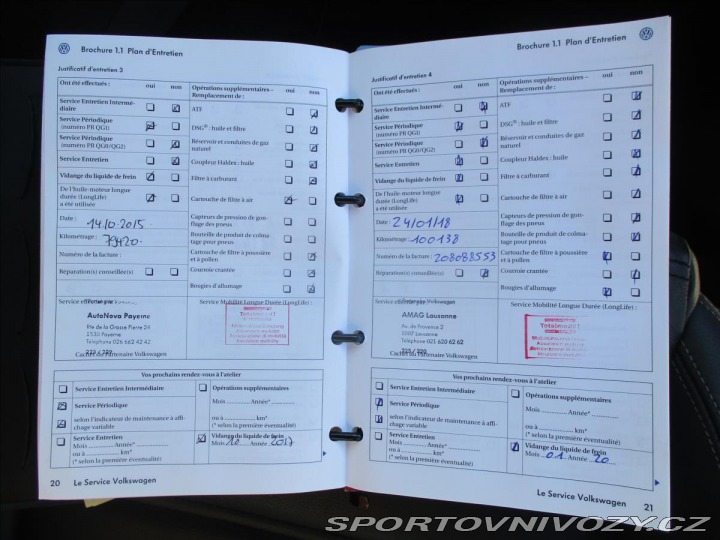 Brochure 1.1 Plan d'Entretien
Justificatif d'entretien 3
Ont été effectués : oui non
Opérations supplémentaires –
Remplacement de : oui non
Service Entretien Intermé-
diaire
ATF
Service Périodique
(numéro PR QG1)
DSG® : huile et filtre
Service Périodique
(numéro PR QG0/QG2)
Réservoir et conduites de gaz
naturel
Service Entretien
Coupleur Haldex : huile
Vidange du liquide de frein
Filtre à carburant
De l'huile-moteur longue
durée (LongLife)
a été utilisée
Cartouche de filtre à air
Date : 14.10.2015
Capteurs de pression de gon-
flage des pneus
Kilométrage : 79420.-
Bouteille de produit de colma-
tage pour pneu
Numéro de la facture :
Cartouche de filtre à poussière
et à pollen
Réparation(s) conseillée(s)
Courroie crantée
Bougies d'allumage
Service effectué par
Service Mobilité Longue Durée (LongLife) :
AutoNova Payerne
Rte de la Grosse Pierre 24
1530 Payerne
Téléphone 026 662 42 42
Cachet du Partenaire Volkswagen
Vos prochains rendez-vous à l'atelier
Service Entretien Intermédiaire
Opérations supplémentaires
Mois Année*
Service Périodique
selon l'indicateur de maintenance à affi-
chage variable
ou à km*
(* selon la première éventualité)
Service Entretien
Mois Année*
ou à km*
(* selon la première éventualité)
Vidange du liquide de frein
Mois 10 Année 2017
20 Le Service Volkswagen
Brochure 1.1 Plan d'Entretien
Justificatif d'entretien 4
Ont été effectués : oui non
Opérations supplémentaires –
Remplacement de : oui non
Service Entretien Intermé-
diaire
ATF
Service Périodique
(numéro PR QG1)
DSG® : huile et filtre
Service Périodique
(numéro PR QG0/QG2)
Réservoir et conduites de gaz
naturel
Service Entretien
Coupleur Haldex : huile
Vidange du liquide de frein
Filtre à carburant
De l'huile-moteur longue
durée (LongLife)
a été utilisée
Cartouche de filtre à air
Date : 24/01/18
Capteurs de pression de gon-
flage des pneus
Kilométrage : 100138
Bouteille de produit de colma-
tage pour pneu
Numéro de la facture : 208088553
Cartouche de filtre à poussière
et à pollen
Réparation(s) conseillée(s)
Courroie crantée
Bougies d'allumage
Service Mobilité Longue Durée (LongLife) :
AMAG Lausanne
Av. de Provence 2
1007 Lausanne
Téléphone 021 620 62 62
Cachet du Partenaire Volkswagen
Totalmobil!
Vos prochains rendez-vous à l'atelier
Service Entretien Intermédiaire
Opérations supplémentaires
Mois Année*
Service Périodique
selon l'indicateur de maintenance à affi-
chage variable
ou à km*
(* selon la première éventualité)
Service Entretien
Mois Année*
ou à km*
(* selon la première éventualité)
Vidange du liquide de frein
Mois 01 Année 20
Le Service Volkswagen 21
SPORTOVNIVOZY.CZ